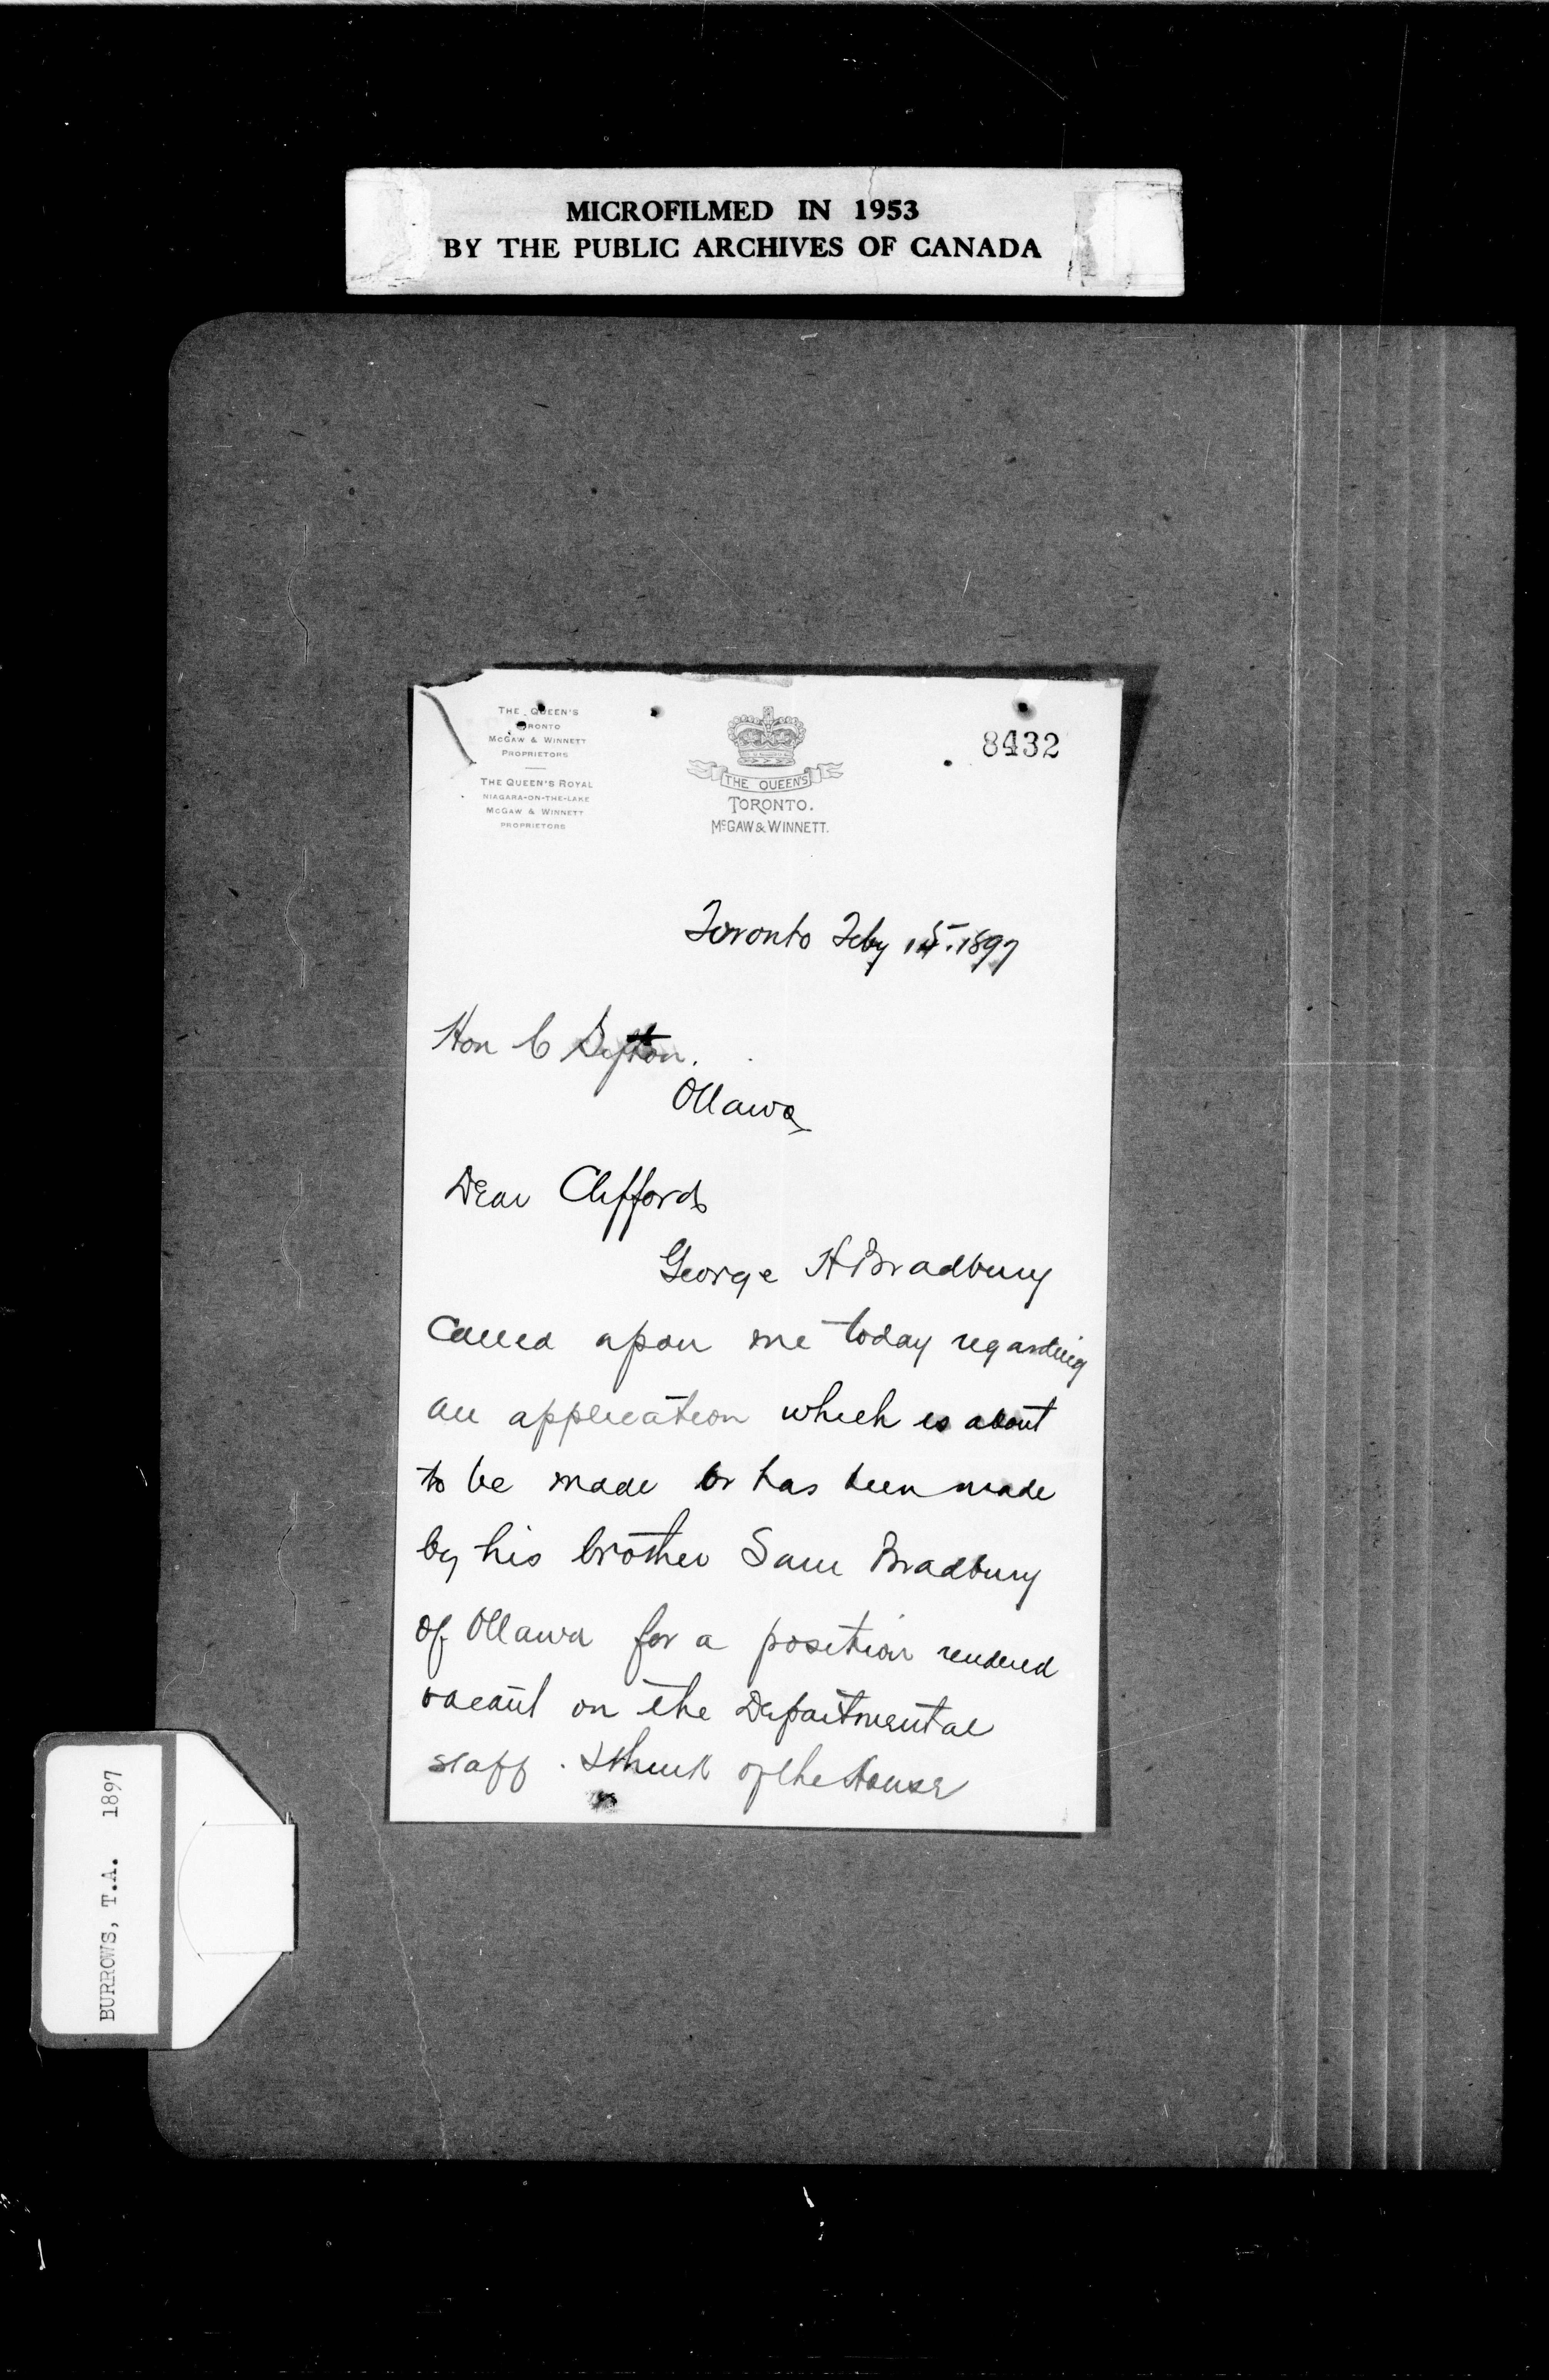 MICROFILMED IN 1953
BY THE PUBLIC ARCHIVES OF CANADA
THE QUEEN'S
TORONTO
McGAW & WINNETT
PROPRIETORS
THE QUEEN'S ROYAL
NIAGARA-ON-THE-LAKE
McGAW & WINNETT
PROPRIETORS
THE QUEEN'S
TORONTO.
McGAW & WINNETT.
8432
Toronto Feby 15. 1897
Hon C Sifton.
Ottawa
Dear Clifford
George H Bradbury
Called upon me today regarding
an application which is about
to be made or has been made
by his brother Sam Bradbury
of Ottawa for a position rendered
vacant on the Departmental
staff. I think of the House
BURROWS, T.A. 1897